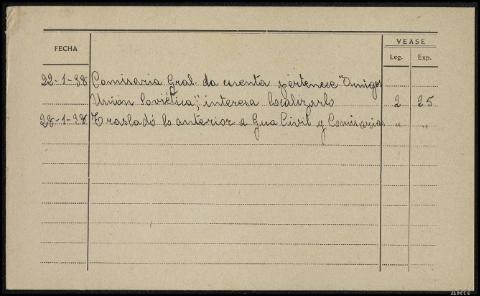 VEASE
FECHA Leg. Exp.
22-1-38 Comisaria Gral. da cuenta pertenece "Amigos
Union Soviética", interesa localizarlo 2 25
28-1-38 Traslado lo anterior a Gua Civil y Comisarias " "